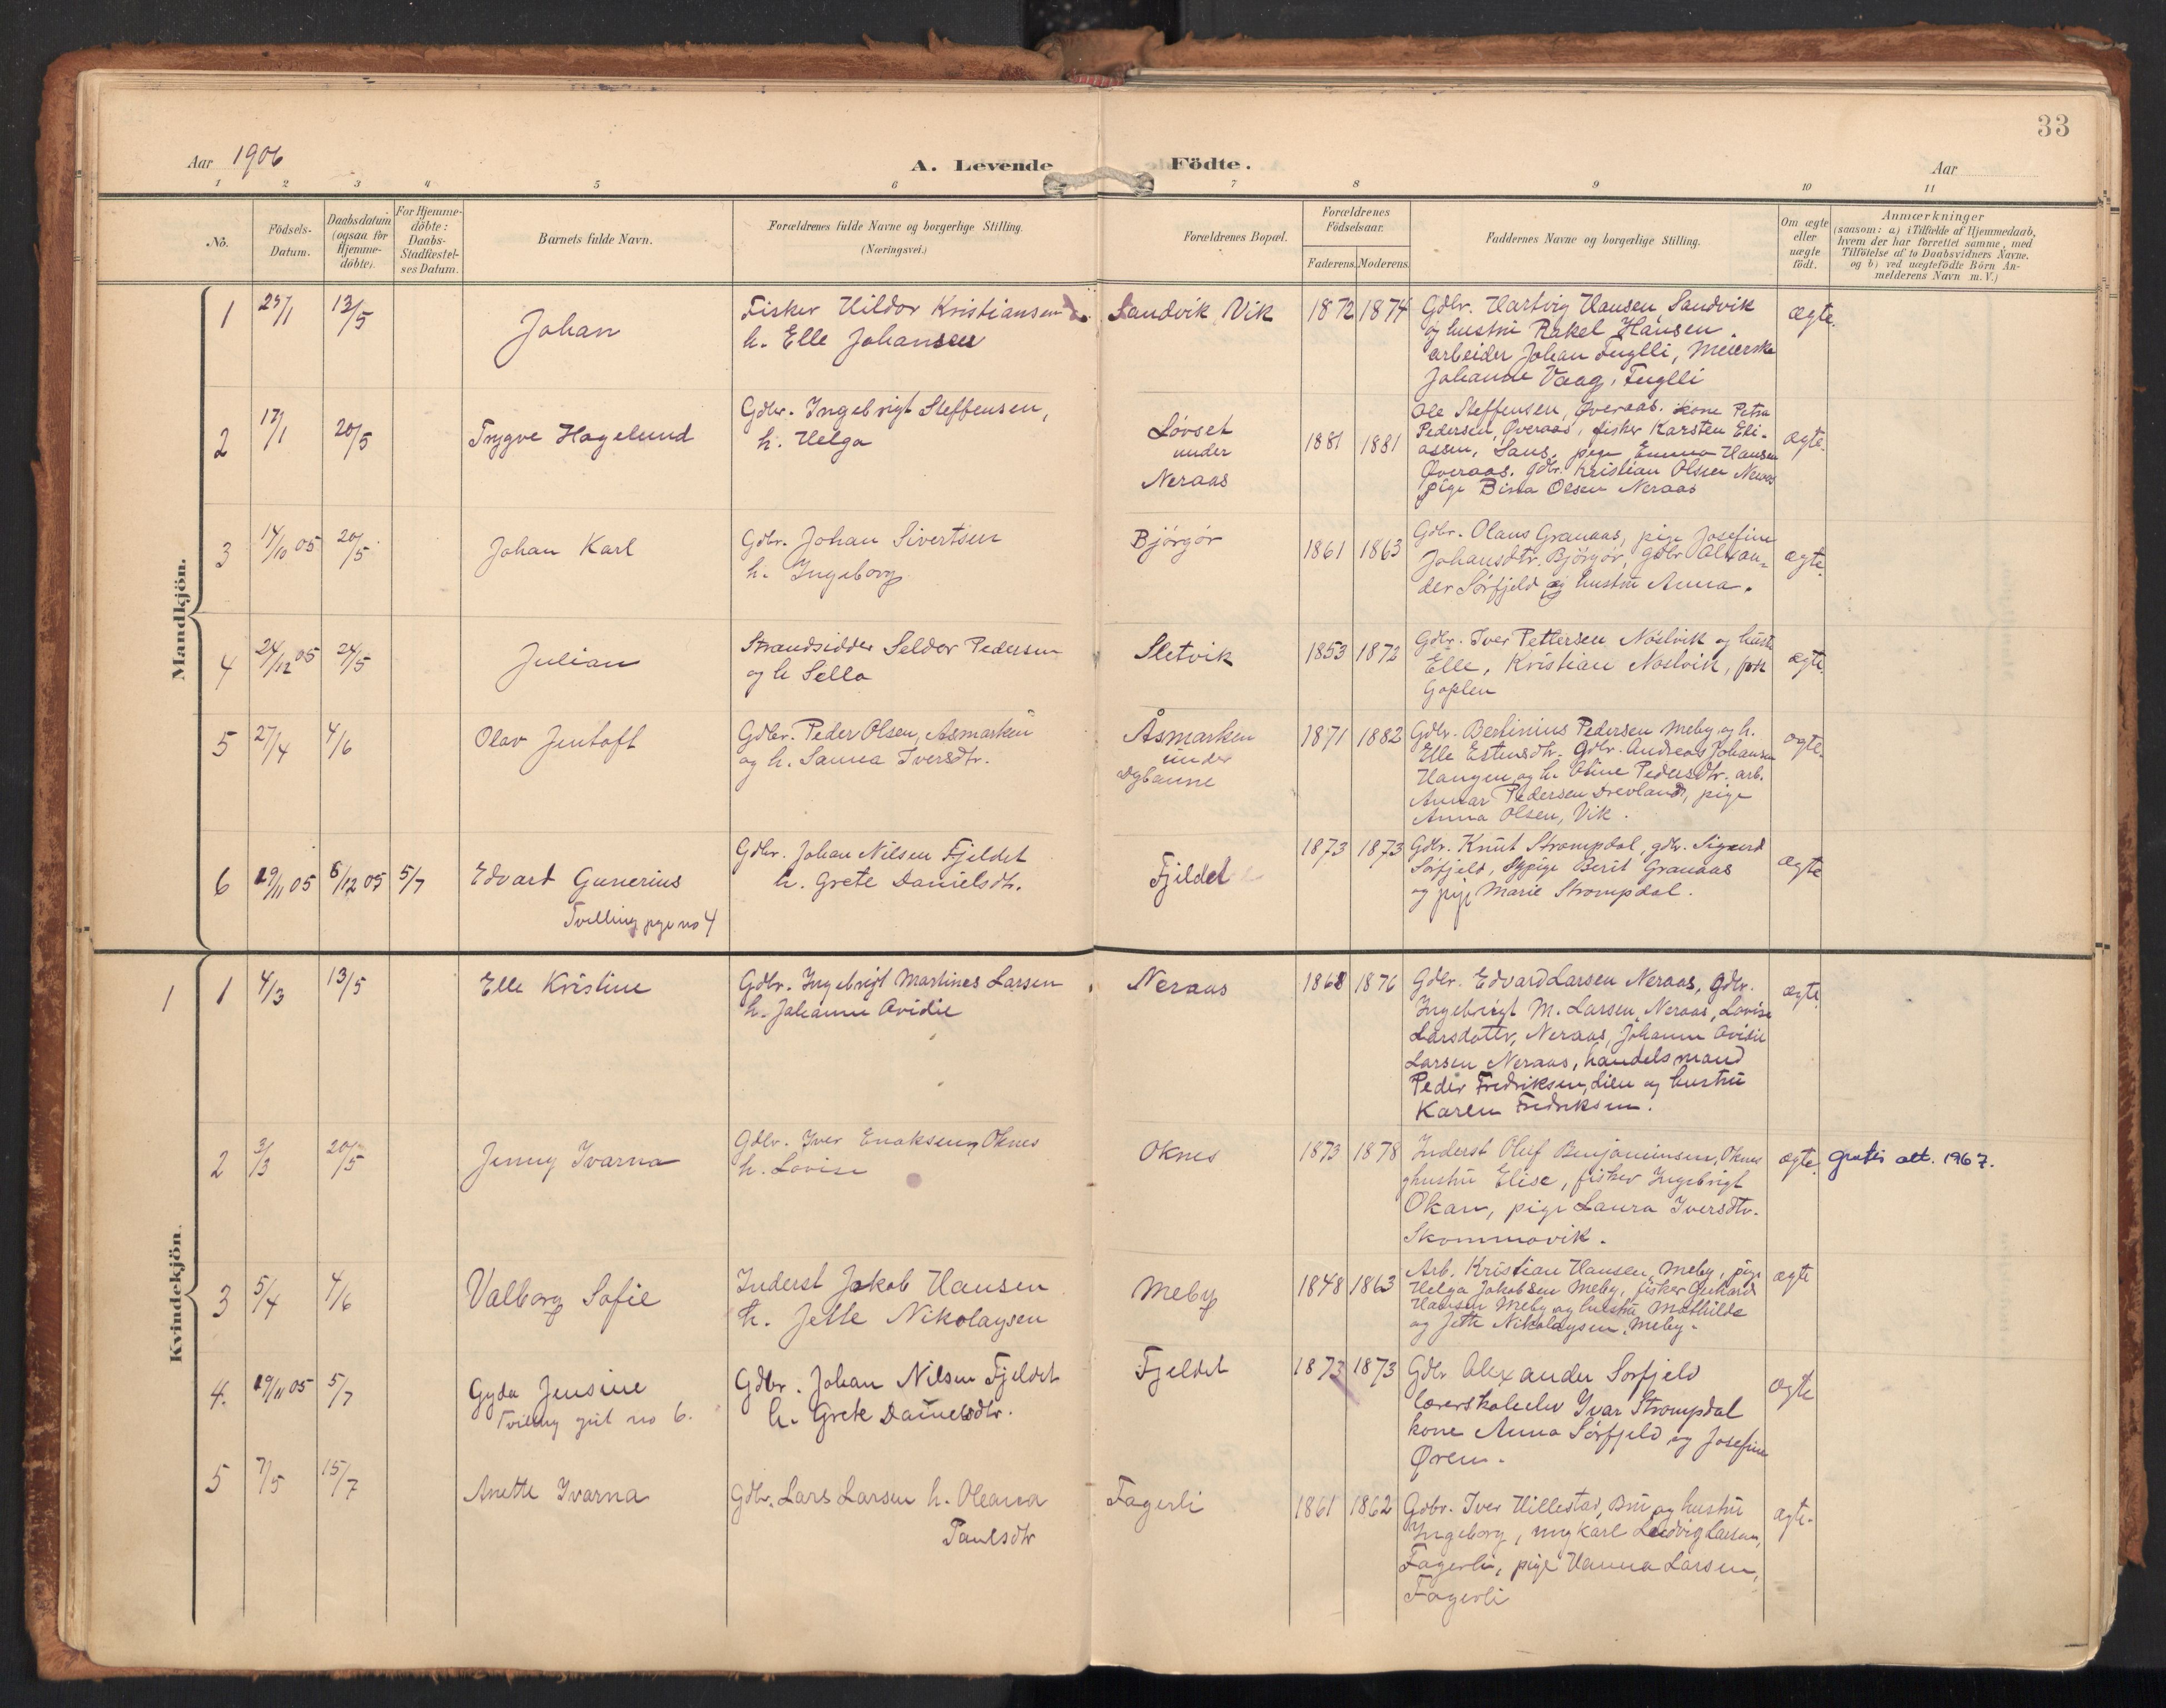 33
Aar 1906
A. Levende Födte.
Aar
1 2 3 4 5 6 7 8 9 10 11
No.
Födsels-Datum.
Daabsdatum (ogsaa for Hjemme-döbte).
For Hjemme-döbte: Daabs-Stadfæstel-ses Datum.
Barnets fulde Navn.
Forældrenes fulde Navne og borgerlige Stilling.
(Næringsvei.)
Forældrenes Bopæl.
Forældrenes Födselsaar.
Faderens. Moderens.
Faddernes Navne og borgerlige Stilling.
Om ægte eller uægte födt.
Anmærkninger
(saasom: a) i Tilfælde af Hjemmedaab,
hvem der har forrettet samme, med
Tilföielse af to Daabsvidners Navne.
og b) ved uægtefödte Börn An-
melderens Navn m. V.)
Mandkjön.
1 25/1 13/5
Johan
Fisker Hildor Kristiansen
h. Elle Johansen
Sandvik Vik
1872 1874
Gdbr. Hartvig Hansen Sandvik
og hustru Rakel Hansen.
arbeider Johan Fuglli, Meierske
Johanne Vaag, Fuglli
ægte.
2 17/1 20/5
Trygve Hagelund
Gdbr. Ingebrigt Steffensen,
h. Helga
Løvset
under
Neraas
1881 1881
Ole Steffensen, Øveraas. kone Petra
Pedersen, Øveraas, fisker Karsten Eli-
assen, Saus, pige Emma Hansen
Øveraas. gdbr. Kristian Olsen Neraas
pige Bina Olsen Neraas
ægte.
3 14/10 05 20/5
Johan Karl
Gdbr. Johan Sivertsen
h. Ingeborg
Bjørgør
1861 1863
Gdbr. Olaus Granaas, pige Josefine
Johansdtr. Bjørgør, gdbr Alexan-
der Sørfjeld og hustru Anna.
ægte.
4 24/12 05 24/5
Julian
Strandsidder Seldor Pedersen
og h Sella
Sletvik
1853 1872
Gdbr. Iver Pettersen Nøslvik og hustr
Elle, Kristian Nøslvik,
Goplen
ægte.
5 27/4 4/6
Olav Jentoft
Gdbr. Peder Olsen, Asmarken
og h. Sanna Iversdtr.
Åsmarken
under
1871 1882
Gdbr. Bertinius Pedersen Meby og h.
Elle Estensdtr. Gdbr. Andreas Johansen
Haugen og h. Oline Pedersdtr. arb.
Annar Pedersen Drevland, pige
Anna Olsen, Vik.
ægte.
6 19/11 05 6/12 05 5/7
Edvard Gunerius
Tvilling pige no 4
Gdbr. Johan Nilsen Fjeldet
h. Grete Danielsdtr.
Fjeldet
1873 1873
Gdbr. Knut Strompdal, gdbr. Sigurd
Sørfjeld, Sypige Berit Granaas
og pige Marie Strompdal.
ægte
Kvindekjön.
1 1 4/3 13/5
Elle Kristine
Gdbr. Ingebrigt Martines Larsen
h. Johanne Ovidie
Neraas
1868 1876
Gdbr. Edvard Larsen Neraas, gdbr.
Ingebrigt M. Larsen, Neraas, Lovise
Larsdatter, Neraas, Johanne Ovidie
Larsen Neraas, handelsmand
Peder Fredriksen, Lien og hustru
Karen Fredriksen.
ægte.
2 3/3 20/5
Jenny Ivarna
Gdbr. Iver Enoksen, Oknes
h. Lovise
Oknes
1873 1878
Inderst Oluf Benjaminsen, Oknes
og hustru Elise, fisker Ingebrigt
Okan, pige Laura Iversdtr.
Skommovik.
ægte.
gratis att. 1967.
3 5/4 4/6
Valborg Sofie
Inderst Jakob Hansen
h. Jette Nikolaysen
Meby
1848 1863
Arb. Kristian Hansen, Meby, pige
Helga Jakobsen Meby, fisker Gerhard
Hansen Meby og hustru Mathilde
og Jette Nikolaysen, Meby.
ægte
4. 19/11 05 5/7
Gyda Jensine
Tvilling gut no 6.
Gdbr. Johan Nilsen Fjeldet
h. Grete Danielsdtr.
Fjeldet
1873 1873
Gdbr Alexander Sorfjeld
lærerskoleelev Ivar Strompdal
kone Anna Sørfjeld og Josefine
Øren.
ægte
5 7/5 15/7
Anette Ivarna
Gdbr. Lars Larsen h. Oleana
Paulsdtr
Fagerli
1861 1862
Gdbr. Iver Hillestad, Bru og hustru
Ingeborg, ungkarl Ludvig Larsen,
Fagerli, pige Hanna Larsen,
Fagerli
ægte.